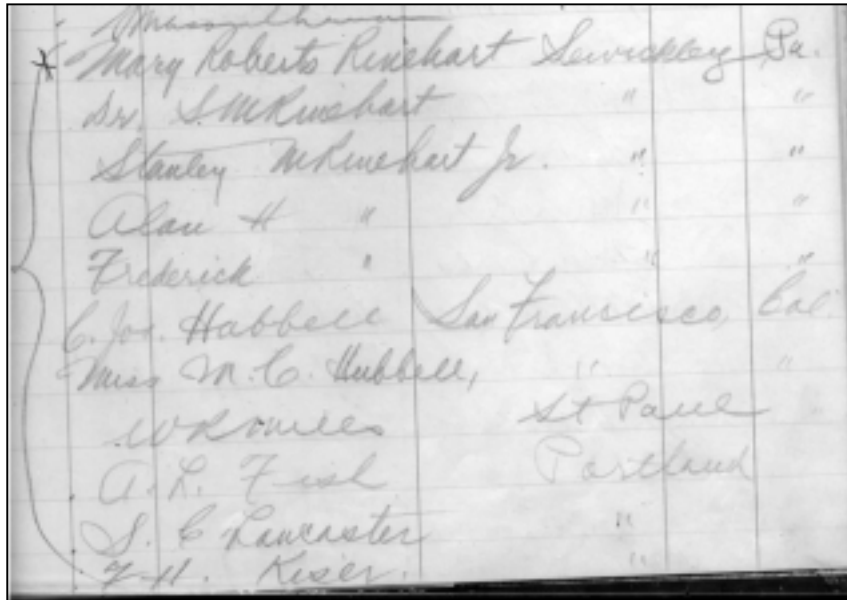 Mary Roberts Rinehart Sewickley Pa.
Dr. S. M Rinehart " "
Stanley M Rinehart Jr. " "
Alan H " " "
Frederick " " "
C. Jos. Hubbell San Francisco, Cal.
Miss M. C. Hubbell, " "
St Paul
A. L. Fish Portland
S. C Lancaster "
F H. Kiser. "